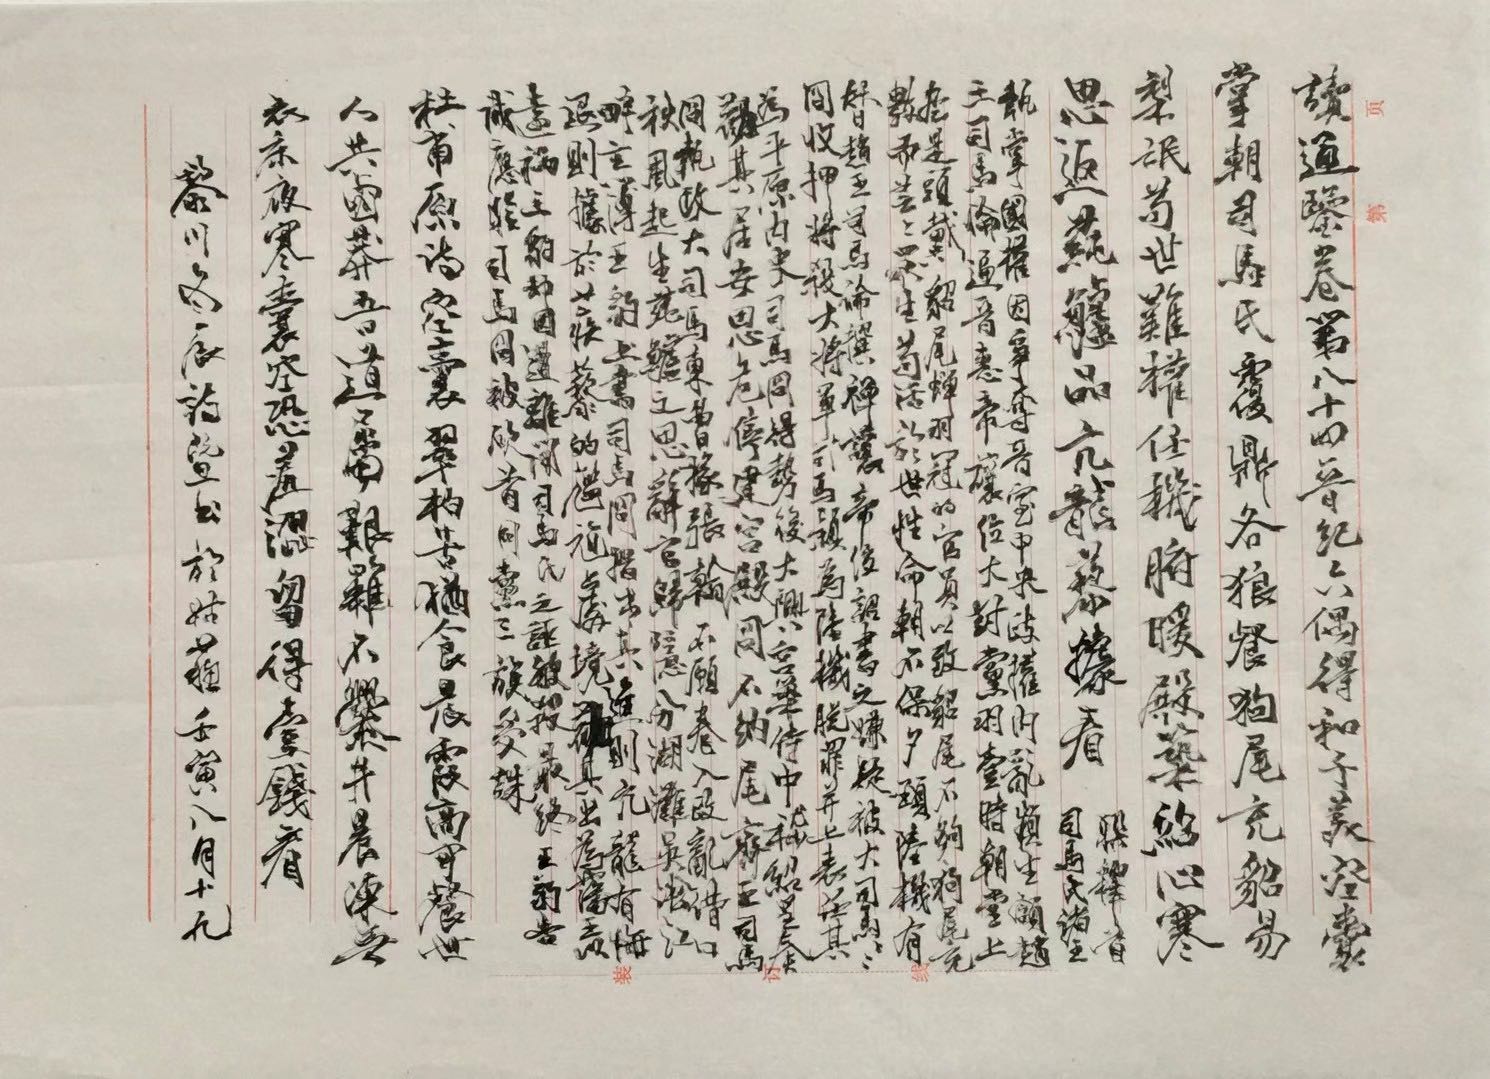 讀通鑒卷第八十四晉紀六偶得和子美空囊
掌朝司馬氏覆鼎各狼餐狗尾充貂易
黎氓苟世難權任機府暖殿築紹心寒
思返蓴鱸品亢龍藜據看
聯釋 省
司馬氏諸王
執掌國權因爭奪晉室中央政權內亂頻生 趙
王司馬倫逼晉惠帝禪位大封黨羽 時朝堂上
盡是頭戴貂尾蟬羽冠的官員以致貂尾不夠狗尾充
數 生苟活於世性命朝不保夕 陸機有
替趙王司馬倫撰禪讓帝位詔書之嫌疑被大司馬
冏收押將殺大將軍司馬穎為陸機脫罪并上表 其
為平原內史司馬冏得勢後大興 築侍中嵇紹 奏
勸其居安思危停建宮殿冏不納 齊王司馬
冏執政大司馬東曹掾張翰不願卷入政亂借口
秋風起生蓴鱸之思辭官歸隱 分湖灘吳淞江
畔主簿王豹上書司馬冏指出其進則亢龍有悔
退則據於蒺藜的尷尬處境
王豹却因遭離間司馬氏之 被殺最終王豹
應驗司馬冏被砍首同黨三族 誅
杜甫原詩空囊翠柏苦猶食晨霞高可餐世
人共鹵莽吾道屬艱難不爨井晨凍無
衣床夜寒囊空恐羞澀留得一錢看
黎川 於姑蘇壬寅八月十九
页
第
装
订
线